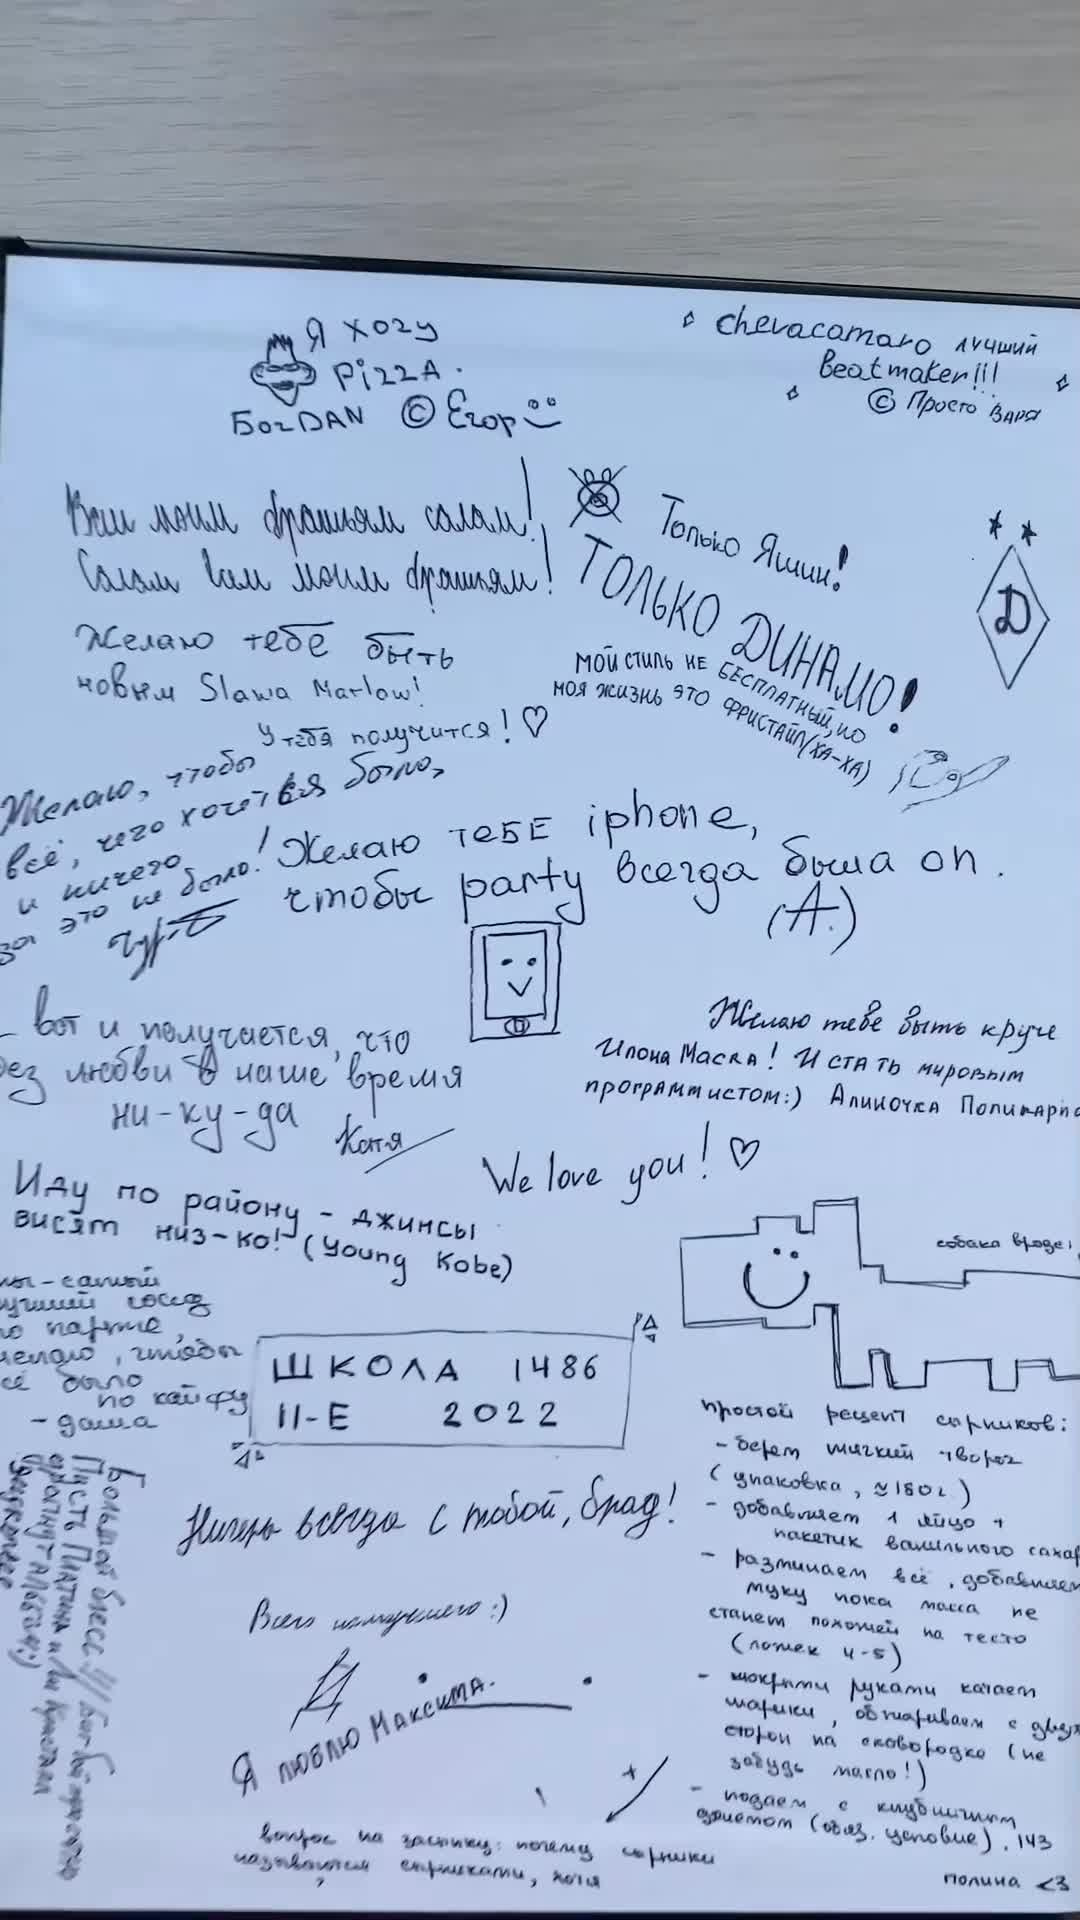 Я хочу
PizzA.
БогDAN © Егор
chevacamaro лучший
beatmaker!!!
© Просто Варя
Вам моим братьям салам!
Салам вам моим братьям!
Только Яшин!
ТОЛЬКО ДИНАМО!
Д
МОЙ СТИЛЬ НЕ БЕСПЛАТНЫЙ, НО
МОЯ ЖИЗНЬ ЭТО ФРИСТАЙЛ (ХА-ХА)
Желаю тебе быть
новым Slawa Marlow!
У тебя получится! ♡
Желаю, чтобы
всё, чего хочется было,
и ничего
за это не было!
Желаю ТЕБЕ iphone,
чтобы party всегда была on.
(А.)
- вот и получается, что
без любви в наше время
ни-ку-да
Катя
Желаю тебе быть круче
Илона Маска! И стать мировым
программистом:) Алиночка
We love you! ♡
Иду по району - джинсы
висят низ-ко! (Young Kobe)
собака вроде
самый
сосед
по парте,
желаю, чтобы
всё было
по кайфу
- даша
ШКОЛА 1486
11-Е 2022
простой рецепт сырников:
- берем мягкий творог
(упаковка, ≈180г.)
- добавляем 1 яйцо +
пакетик ванильного
- разминаем всё, добавляем
муку пока масса не
станет похожей на тесто
(ложек 4-5)
- мокрыми руками катаем
шарики, обжариваем с двух
сторон на сковородке (не
забудь масло!)
- подаем с клубничным
джемом (обяз. условие). 143
полина <3
Большой блесс!!!
Пусть Платина и
всегда с тобой, брат!
Всего наилучшего:)
Я люблю Максима.
вопрос на засыпку: почему сырники
называются сырниками, хотя